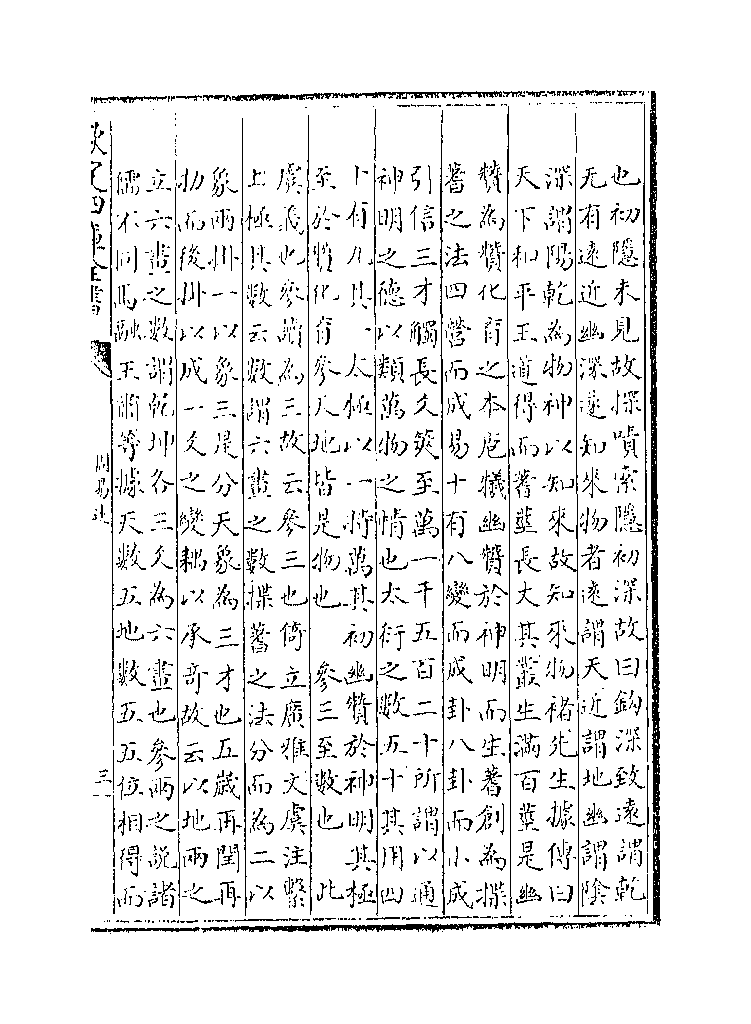 也初隱未見故探嘖索隱初深故曰鈎深致遠謂乾
无有遠近幽深遂知來物者遠謂天近謂地幽謂陰
深謂陽乾為物神以知來故知來物褚先生據傳曰
天下和平王道得而蓍莖長大其叢生滿百莖是幽
贊為贊化育之本庖犧幽贊於神明而生蓍創為揲
蓍之法四營而成易十有八變而成卦八卦而小成
引信三才觸長爻筴至萬一千五百二十所謂以通
神明之德以類萬物之情也大衍之數五十其用四
十有九其一太極以一持萬其初幽贊於神明其極
至於贊化育參天地皆是物也 參三至數也 此
虞義也參讀為三故云參三也倚立廣雅文虞注繫
上極其數云數謂六畫之數揲蓍之法分而為二以
象兩掛一以象三是分天象為三才也五歲再閏再
扐而後掛以成一爻之變耦以承奇故云以地兩之
立六畫之數謂乾坤各三爻為六畫也參兩之說諸
儒不同馬融王肅等據天數五地數五五位相得而
欽定四庫全書
周易述